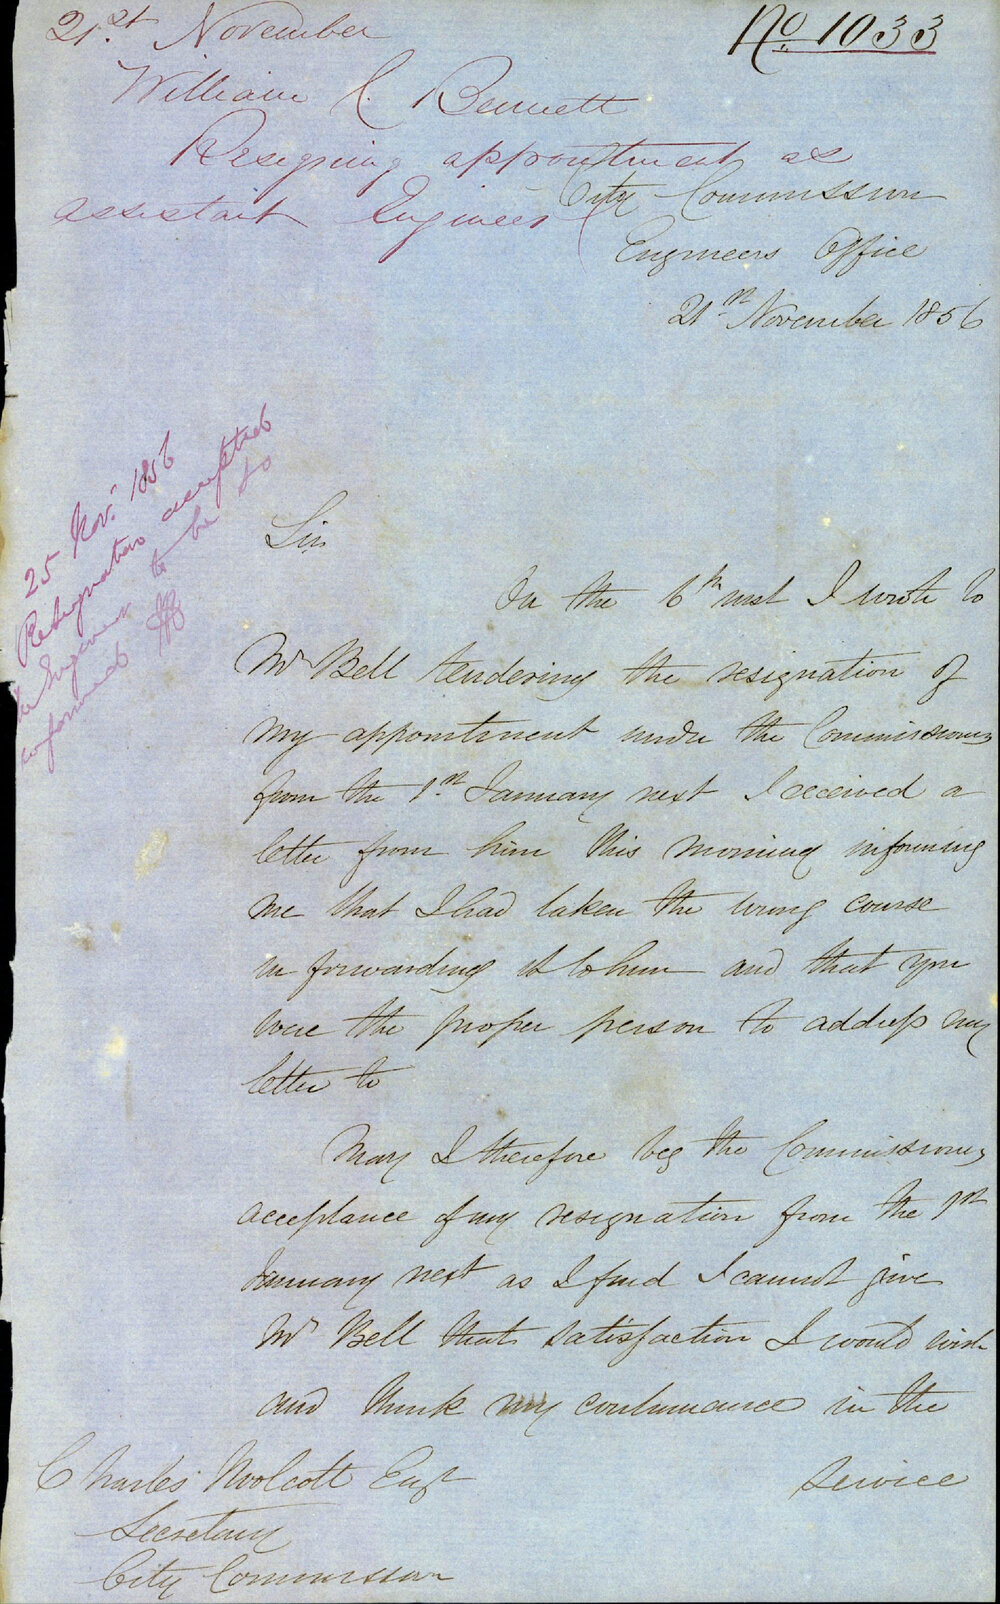 No. 1033
21st November
William C. Bennett
Resigning appointment as
assistant Engineer
City Commission
Engineers Office
21st November 1856
25 Nov. 1856
Resignation accepted
Engineer to be so
informed
Sir
On the 6th inst I wrote to
Mr Bell tendering the resignation of
my appointment under the Commissioners
from the 1st January next I received a
letter from him this morning informing
me that I had taken the wrong course
in forwarding it to him and that you
were the proper person to address my
letter to
May I therefore beg the Commissioners
acceptance of my resignation from the 1st
January next as I find I cannot give
Mr Bell that satisfaction I would wish
and think my continuance in the
service
Charles Woolcott Esqr
Secretary
City Commission